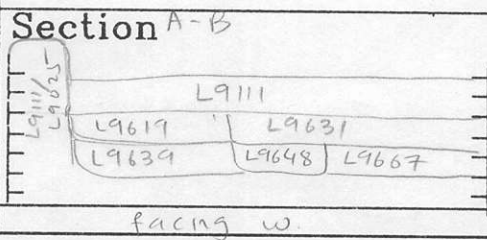 Section A-B
L9111/
L9625
L9111
L9619 L9631
L9639 L9648 L9667
facing w.